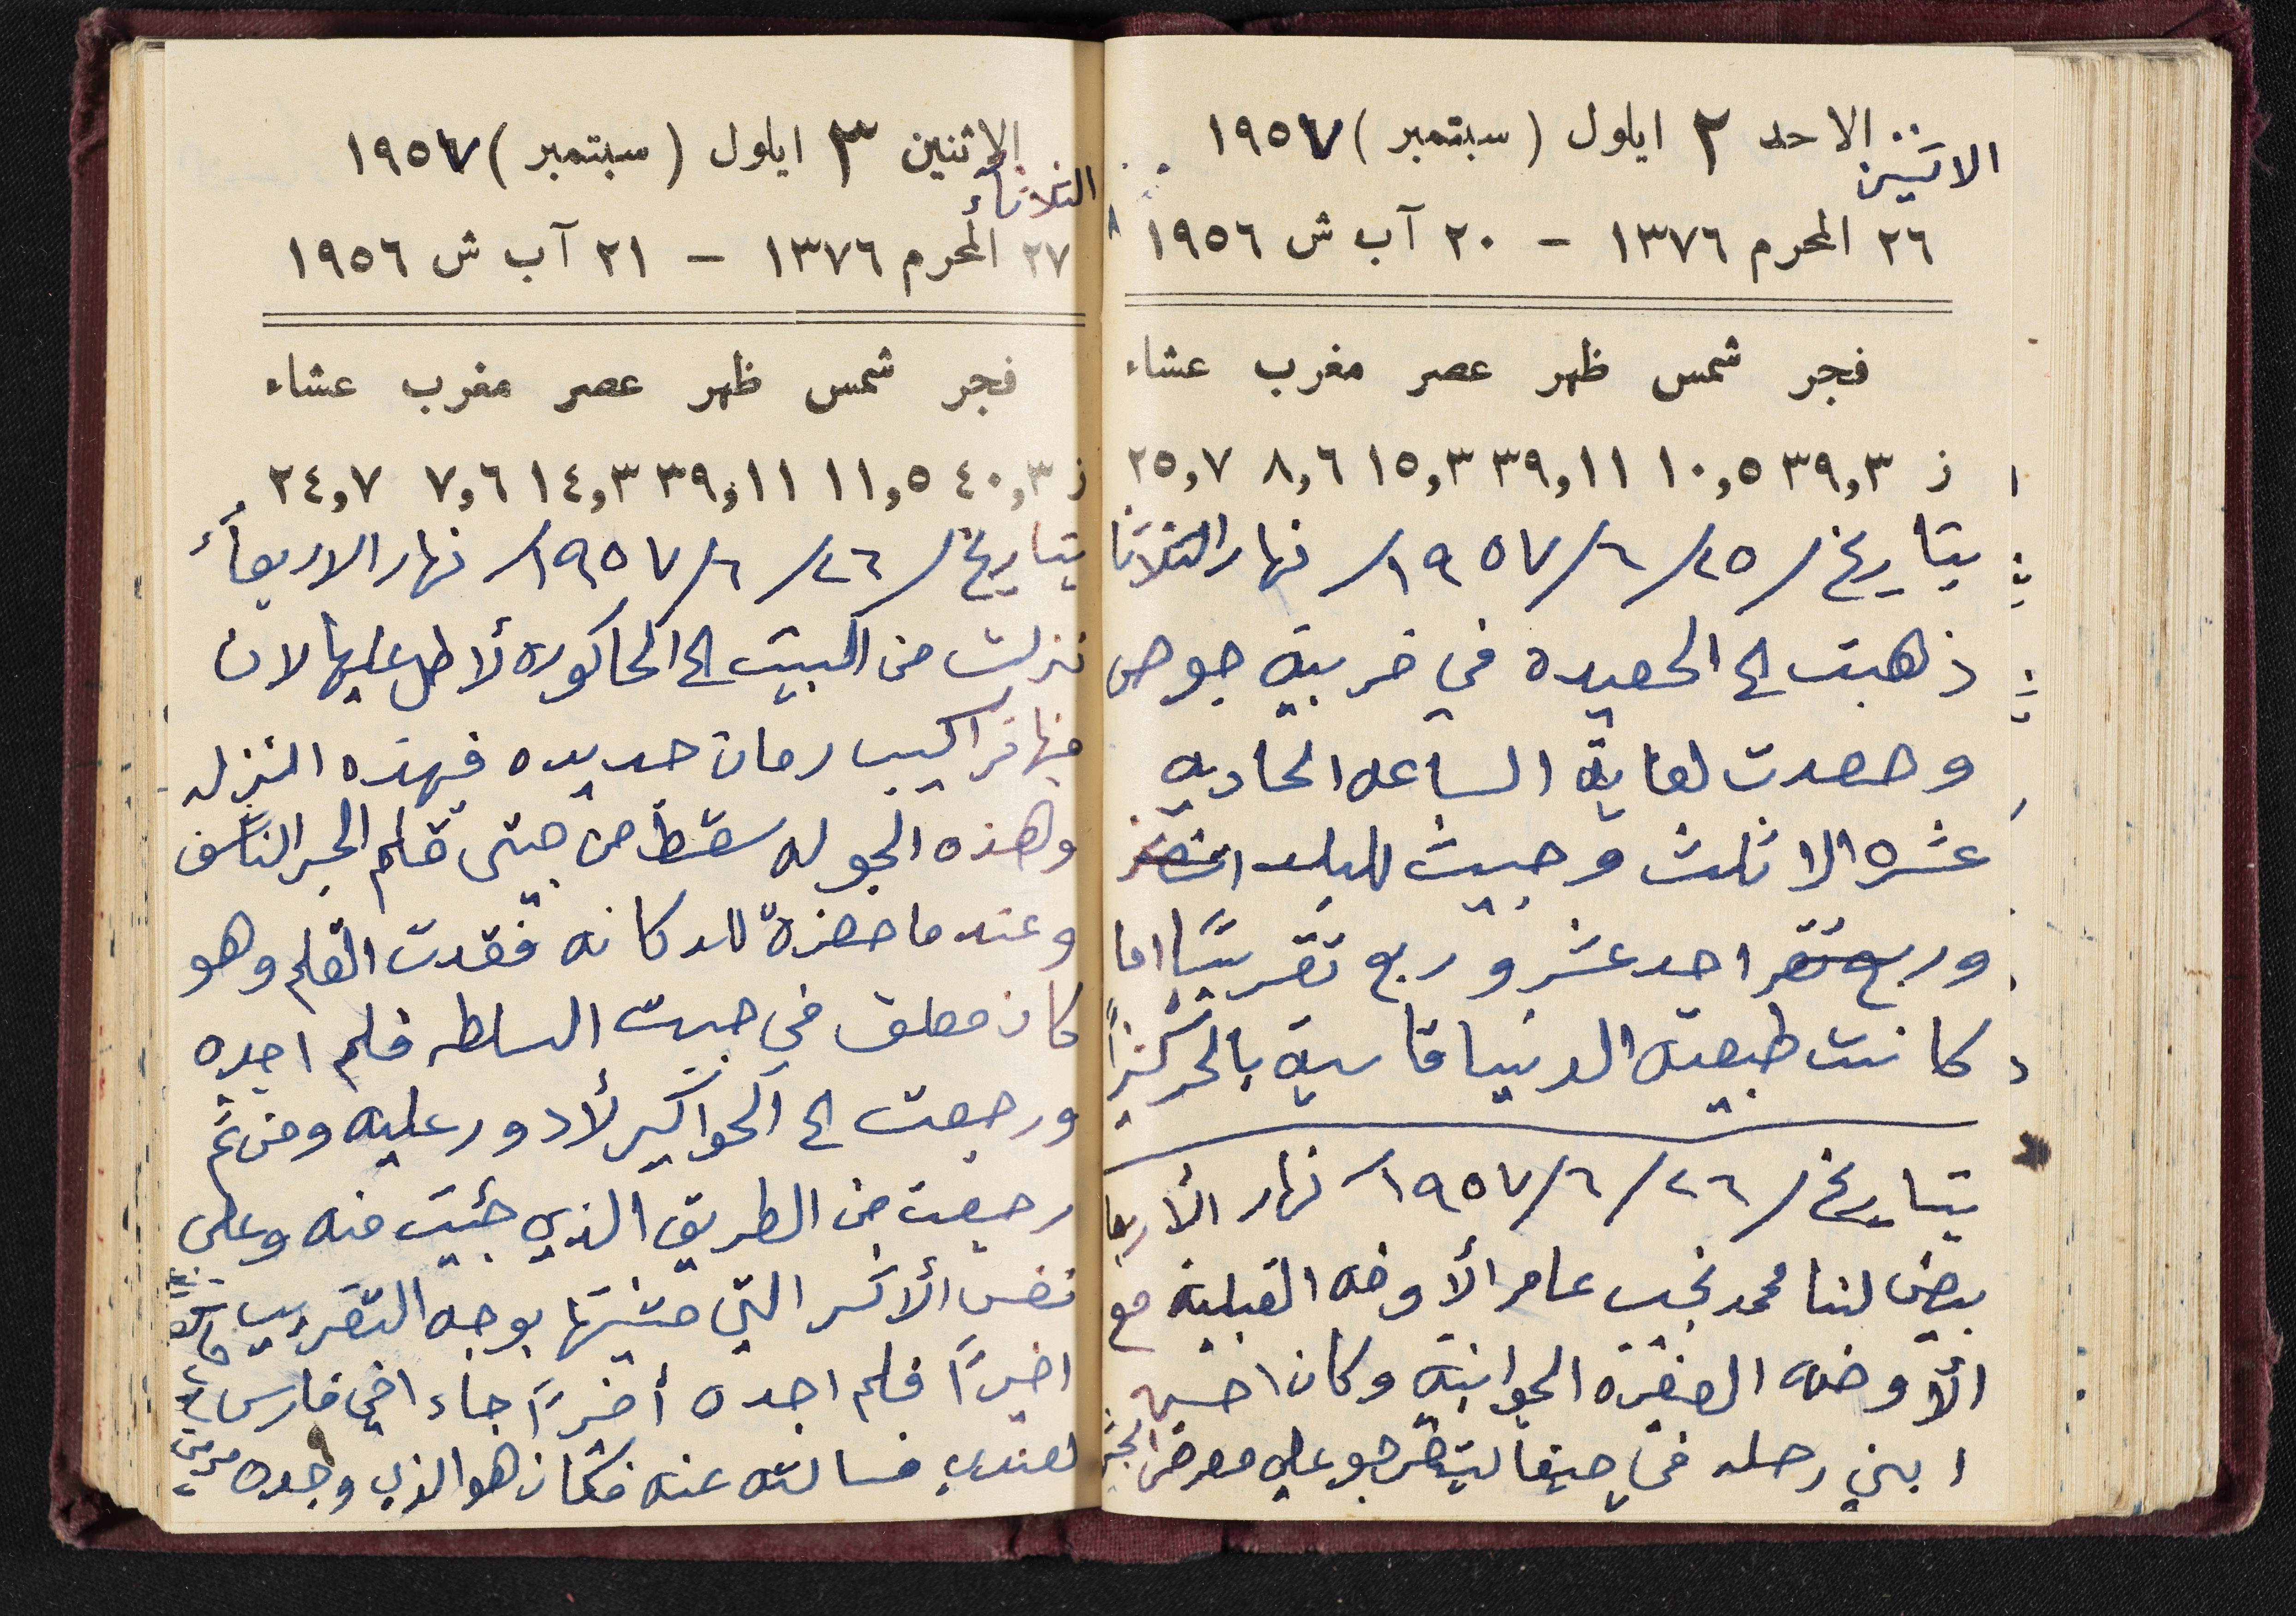 الاحد ٢ ايلول (سبتمبر) ١٩٥٧
الاثنين
٢٦ المحرم ١٣٧٦ – ٢٠ آب ش ١٩٥٦
فجر شمس ظهر عصر مغرب عشاء
ز ٣٩,٣ ١٠,٥ ٣٩,١١ ١٥,٣ ٨,٦ ٢٥,٧
بتاريخ / ٢٥/ ٦/ ١٩٥٧/ نهار الثلاثا
ذهبت الى الحصيده في خربة جوهر
وحصدت لغاية الساعه الحاديه
عشره الا ثلث وجيت للبلد
وربع احد عشر وربع تقريبًا اما
كانت طبيعة الدنيا قاسية بالحر كثيرًا
بتاريخ / ٢٦/ ٦/ ١٩٥٧/ نهار الأربعا
بيض لنا محمد نجيب عامر الأوضه القبلية مع
الأوضه الصغيره الجوانية وكان احسين
ابني رحله في حيفا ليتفرجو على معرض
الاثنين ٣ ايلول (سبتمبر) ١٩٥٧
الثلاثاء
٢٧ المحرم ١٣٧٦ – ٢١ آب ش ١٩٥٦
فجر شمس ظهر عصر مغرب عشاء
ز ٤٠,٣ ١١,٥ ٣٩,١١ ١٤,٣ ٧,٦ ٢٤,٧
بتاريخ / ٢٦/ ٦/ ١٩٥٧/ نهار الاربعاء
نزلت من البيت الى الحاكوره لأطل عليها لان
فيها تراكيب رمان جديده فهذه النزله
وهذه الجوله سقط من جيبتي قلم الحبر الناشف
وعندما حضرة للدكانه فقدت القلم وهو
كان معلق في جيبت السلطه فلم اجده
ورجعت الى الحواكير لأدور عليه ومن ثم
رجعت من الطريق الذي جئيت منه وعلى
نفس ألاثر التي مشيتها بوجه التقريب
اخيرًا فلم اجده أخيرًا جاء اخي فارس
لعندي فسالته عنه فكان هو الذي وجده